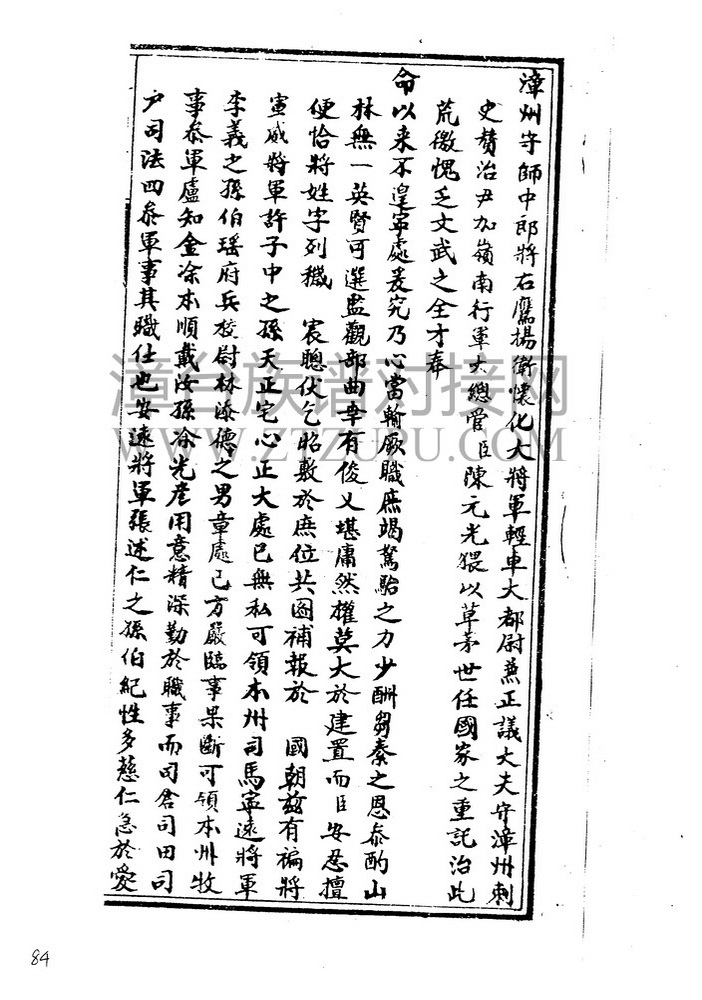 漳州守師中郎將右鷹揚衛懷化大將軍輕車大都尉兼正議大夫守漳州刺
史賛治尹加嶺南行軍大總管臣陳元光猥以草茅世任國家之重託治此
荒徼愧乏文武之全才奉
命以来不遑寧處爰究乃心當輸厥職庶竭駑駘之力少酬芻豢之恩泰酌山
林無一英賢可選監觀部曲幸有俊乂堪庸然權莫大於建置而臣安忍擅
便恰將姓字列穢 宸聰伏乞昭敷於庶位共圖補報於 國朝兹有褊將
宣威將軍許子中之孫天正宅心正大處已無私可領本州司馬寧遠將軍
李義之孫伯瑶府兵校尉林添德之男章處已方嚴臨事果斷可領本州牧
事参軍盧知金涂本順戴汝孫涂光彦用意精深勤於職事而司倉司田司
户司法四参軍事其職仕也安遠將軍張述仁之孫伯紀性多慈仁急於愛
漳台族谱对接网
WWW.ZTZUPU.COM
84